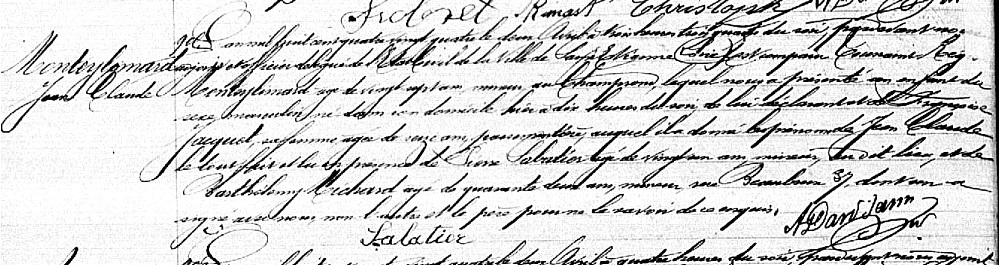 Sideret Christoph
Monteylemard
Jean Claude
L'an mil huit cent quatre vingt quatre le deux Avril à trois heures trois quarts du soir, par devant nous
adjoint et officier délégué de l'Etat civil de la Ville de Saint Etienne (Loire) est comparu
Monteylemard âgé de vingt sept ans, mineur, au Champrond, lequel nous a présenté un enfant du
sexe masculin, né dans son domicile hier à dix heures du soir, de lui déclarant et de Françoise
Jacquet, sa femme âgée de seize ans, passementière, auquel il a donné les prénoms de Jean Claude
le tout fait et lu en présence de Pierre Sabatier âgé de vingt un ans, mineur, au dit lieu, et de
Barthélemy Richard âgé de quarante deux ans, mineur, rue Beaubrun 37, dont un a
signé avec nous, non l'autre et le père pour ne le savoir de ce enquis.
Sabatier
quatre le deux Avril à quatre heures du soir